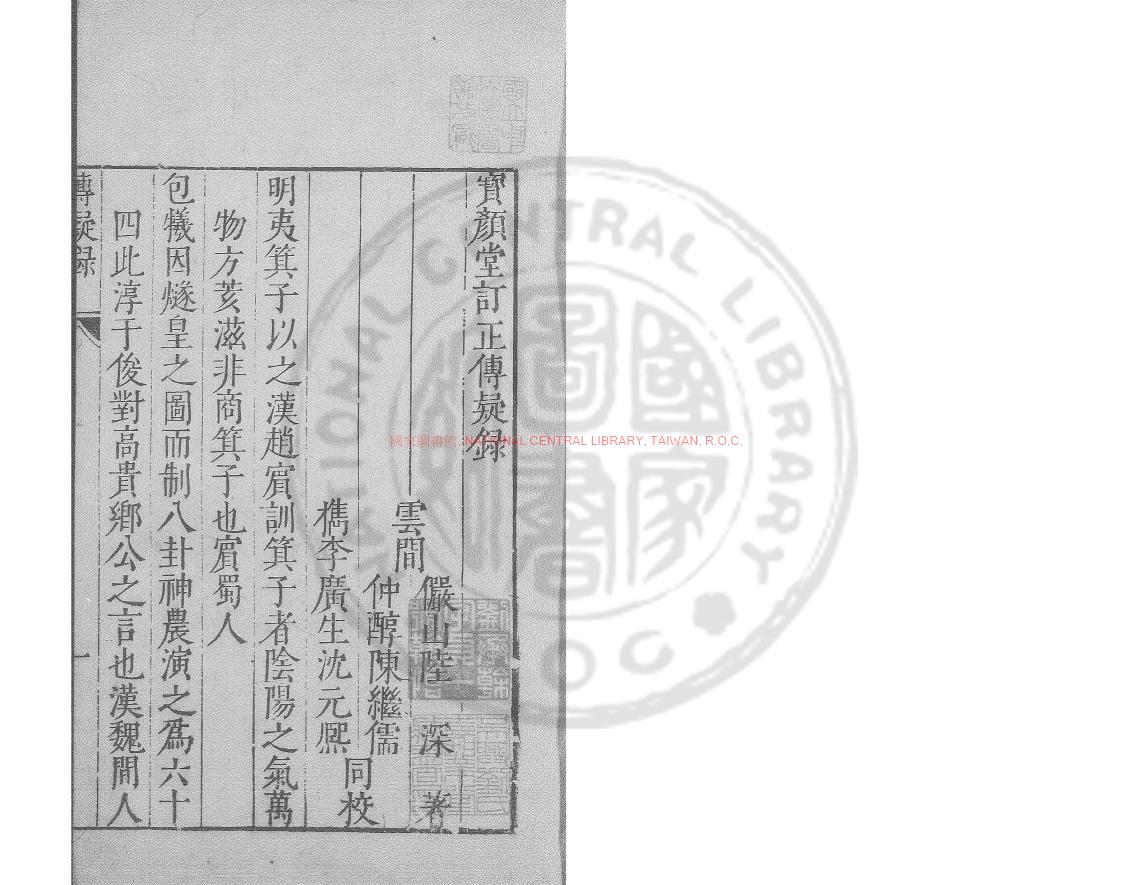 寳顏堂訂正傳疑録
雲間
儼山陸 深 著
仲醇陳繼儒
檇李廣生沈元熈
同校
明夷箕子以之漢趙賔訓箕子者陰陽之氣萬
物方荄滋非商箕子也賔蜀人
包犧因燧皇之圖而制八卦神農演之爲六十
四此淳于俊對高貴鄉公之言也漢魏間人
傳疑録
一
NATIONAL CENTRAL LIBRARY
R.O.C.
國家圖書館
國家圖書館, NATIONAL CENTRAL LIBRARY, TAIWAN, R.O.C.